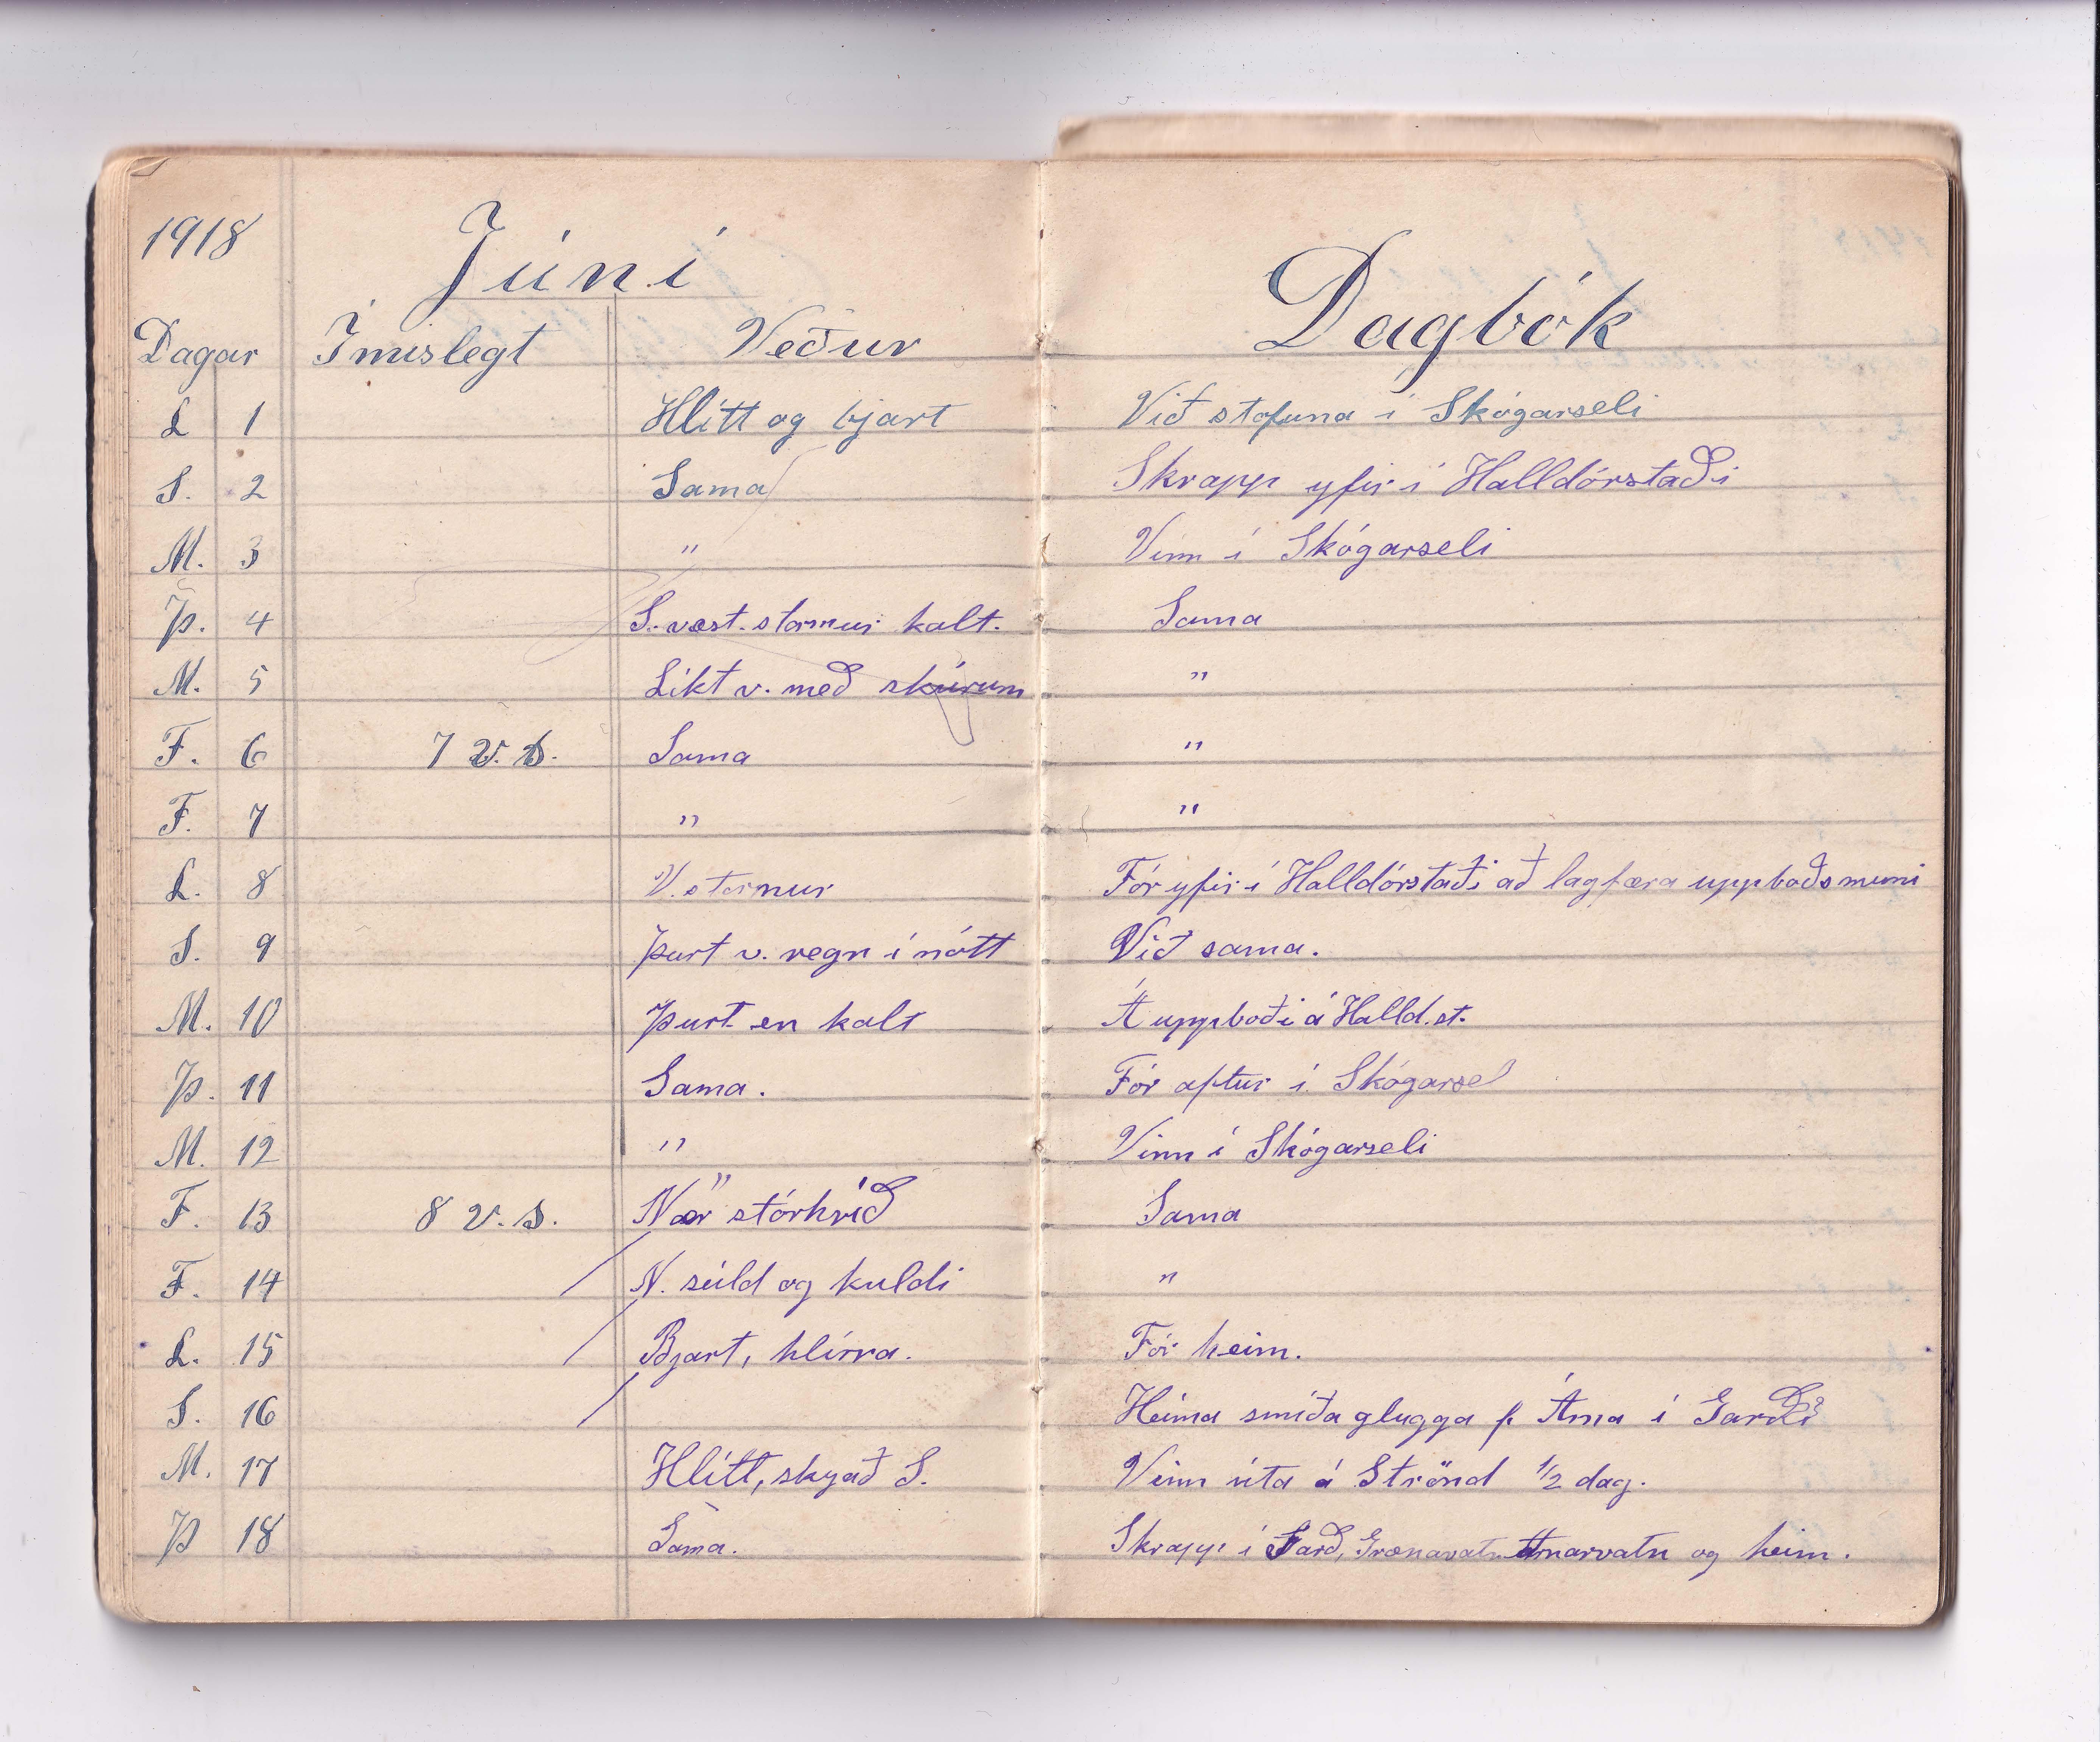 1918 Júní Dagbók
Dagar Ímislegt Veður
L 1 Hlítt og bjart Við stofuna í Skógarseli
S. 2 Sama Skrapp yfir í Halldórstaði
M. 3 " Vinn í Skógarseli
Þ. 4 S. vest. stormur kalt. Sama
M. 5 Líkt v. með skúrum "
F. 6 7 v. s. Sama "
F. 7 " "
L. 8 V. stormur Fór yfir í Halldórstaði að lagfæra uppboðsmuni
S. 9 Þurt v. regn í nótt Við sama.
M. 10 Þurt en kalt Á uppboði á Halld.st.
Þ. 11 Sama. Fór aftur í Skógarsel
M. 12 " Vinn í Skógarseli
F. 13 8 v. s. Nær stórhríð Sama
F. 14 N. súld og kuldi "
L. 15 Bjart, hlírra. Fór heim.
S. 16 Heima smíða glugga f. Árna í Garði
M. 17 Hlítt, skyað S. Vinn úta á Strönd 1/2 dag.
Þ 18 Sama. Skrapp í Garð, Grænavatn Arnarvatn og heim.